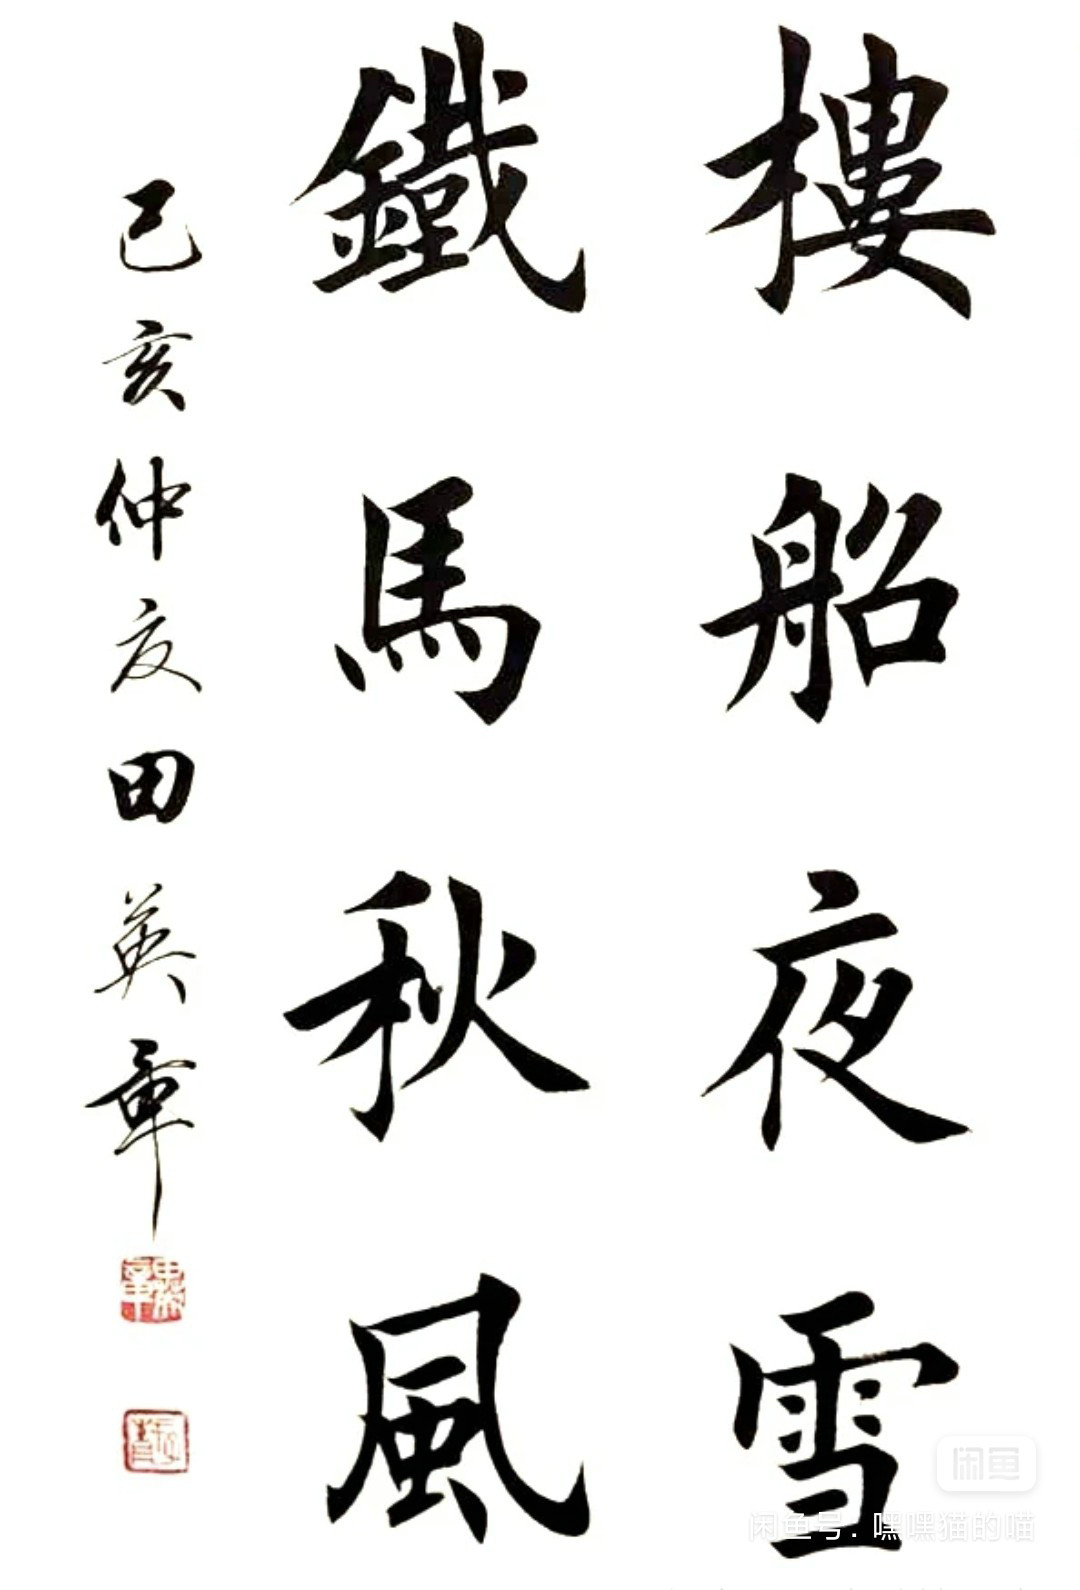 樓船夜雪
鐵馬秋風
己亥仲夏田英章
闲鱼
闲鱼号：嘿嘿猫的喵